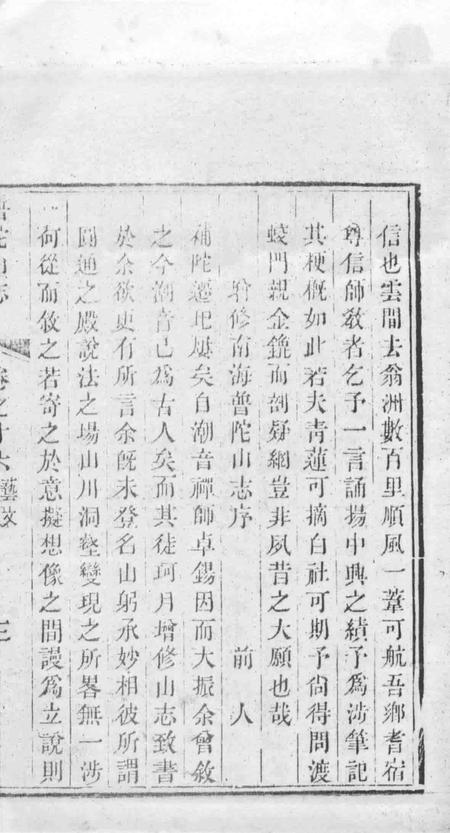 信也雲間去翁洲數百里順風一葦可航吾鄉耆宿
尊信師敎者乞予一言誦揚中興之績予爲涉筆記
其梗概如此若夫靑蓮可摘白社可期予尙得問渡
蛟門親金鎞而剖疑網豈非夙昔之大願也哉
增修南海普陀山志序 前人
補陀遷圯屢矣自潮音禪師卓錫因而大振余曾敘
之今潮音已爲古人矣而其徒珂月增修山志致書
於余欲更有所言余旣未登名山躬承妙相彼所謂
圓通之殿說法之場山川洞壑變現之所畧無一涉
何從而敘之若寄之於意擬想像之間謾爲立說則
普陀山志 卷之十六 藝文 三